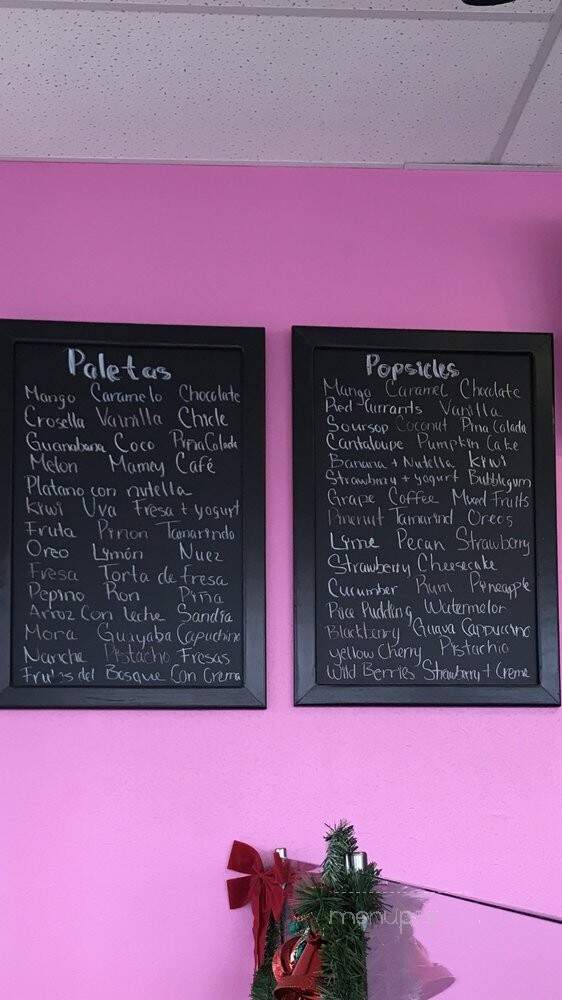 Paletas
Mango Caramelo Chocolate
Crosella Vainilla Chicle
Guanabana Coco Piña Colada
Melon Mamey Café
Platano con nutella
Kiwi Uva Fresa + yogurt
Fruta Piñon Tamarindo
Oreo Limón Nuez
Fresa Torta de fresa
Pepino Ron Piña
Arroz Con leche Sandía
Mora Guayaba Capuchino
Nanche Pistacho Fresas
Frutas del Bosque Con Crema
Popsicles
Mango Caramel Chocolate
Red Currants Vanilla
Soursop Coconut Pina Colada
Cantaloupe Pumpkin Cake
Banana + Nutella Kiwi
Strawberry + yogurt Bubblegum
Grape Coffee Mixed Fruits
Pinenut Tamarind Oreos
Lime Pecan Strawberry
Strawberry Cheesecake
Cucumber Rum Pineapple
Rice Pudding Watermelon
Blackberry Guava Cappuccino
yellow Cherry Pistachio
Wild Berries Strawberry + Creme